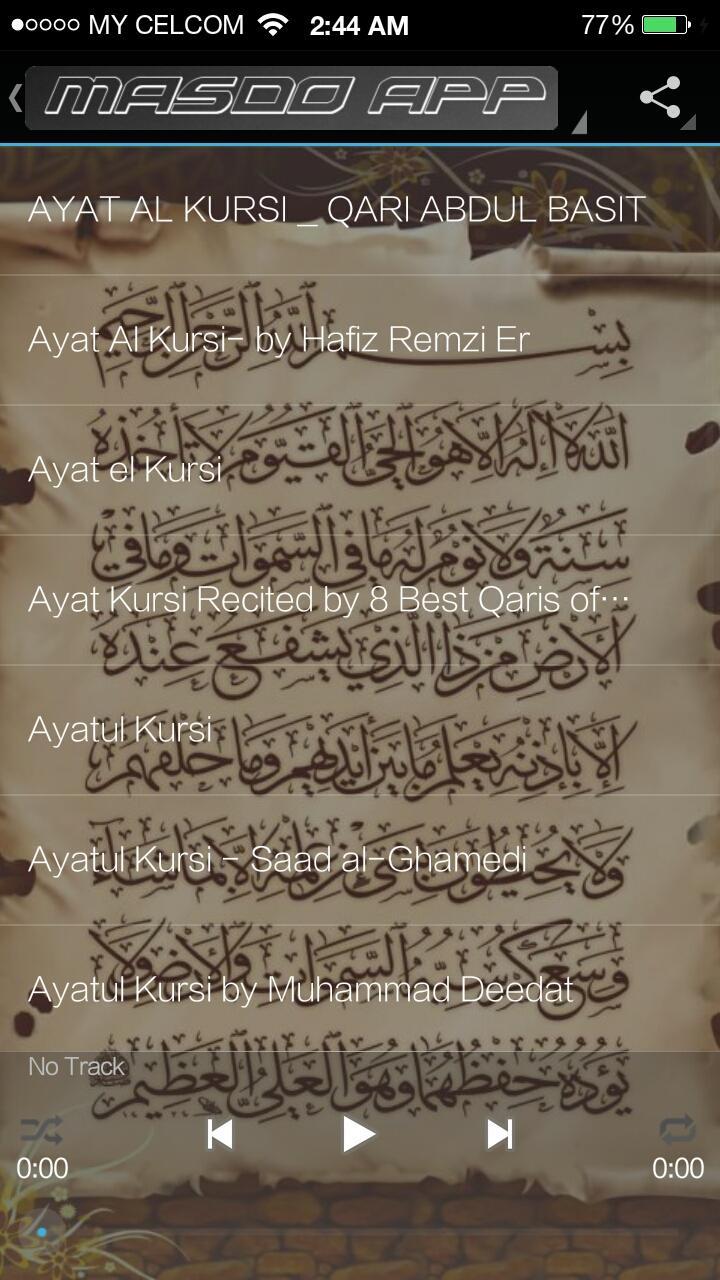 MY CELCOM 2:44 AM 77%
MASDO APP
AYAT AL KURSI _ QARI ABDUL BASIT
بسم الله الرحمن الرحيم
Ayat Al Kursi- by Hafiz Remzi Er
الله لا إله إلا هو الحي القيوم لا تأخذه
Ayat el Kursi
سنة ولا نوم له ما في السموات وما في
Ayat Kursi Recited by 8 Best Qaris of...
الأرض من ذا الذي يشفع عنده
Ayatul Kursi
إلا بإذنه يعلم ما بين أيديهم وما خلفهم
Ayatul Kursi - Saad al-Ghamedi
ولا يحيطون بشيء من علمه إلا بما شاء
Ayatul Kursi by Muhammad Deedat
وسع كرسيه السموات والأرض ولا
No Track
يؤده حفظهما وهو العلي العظيم
0:00 0:00